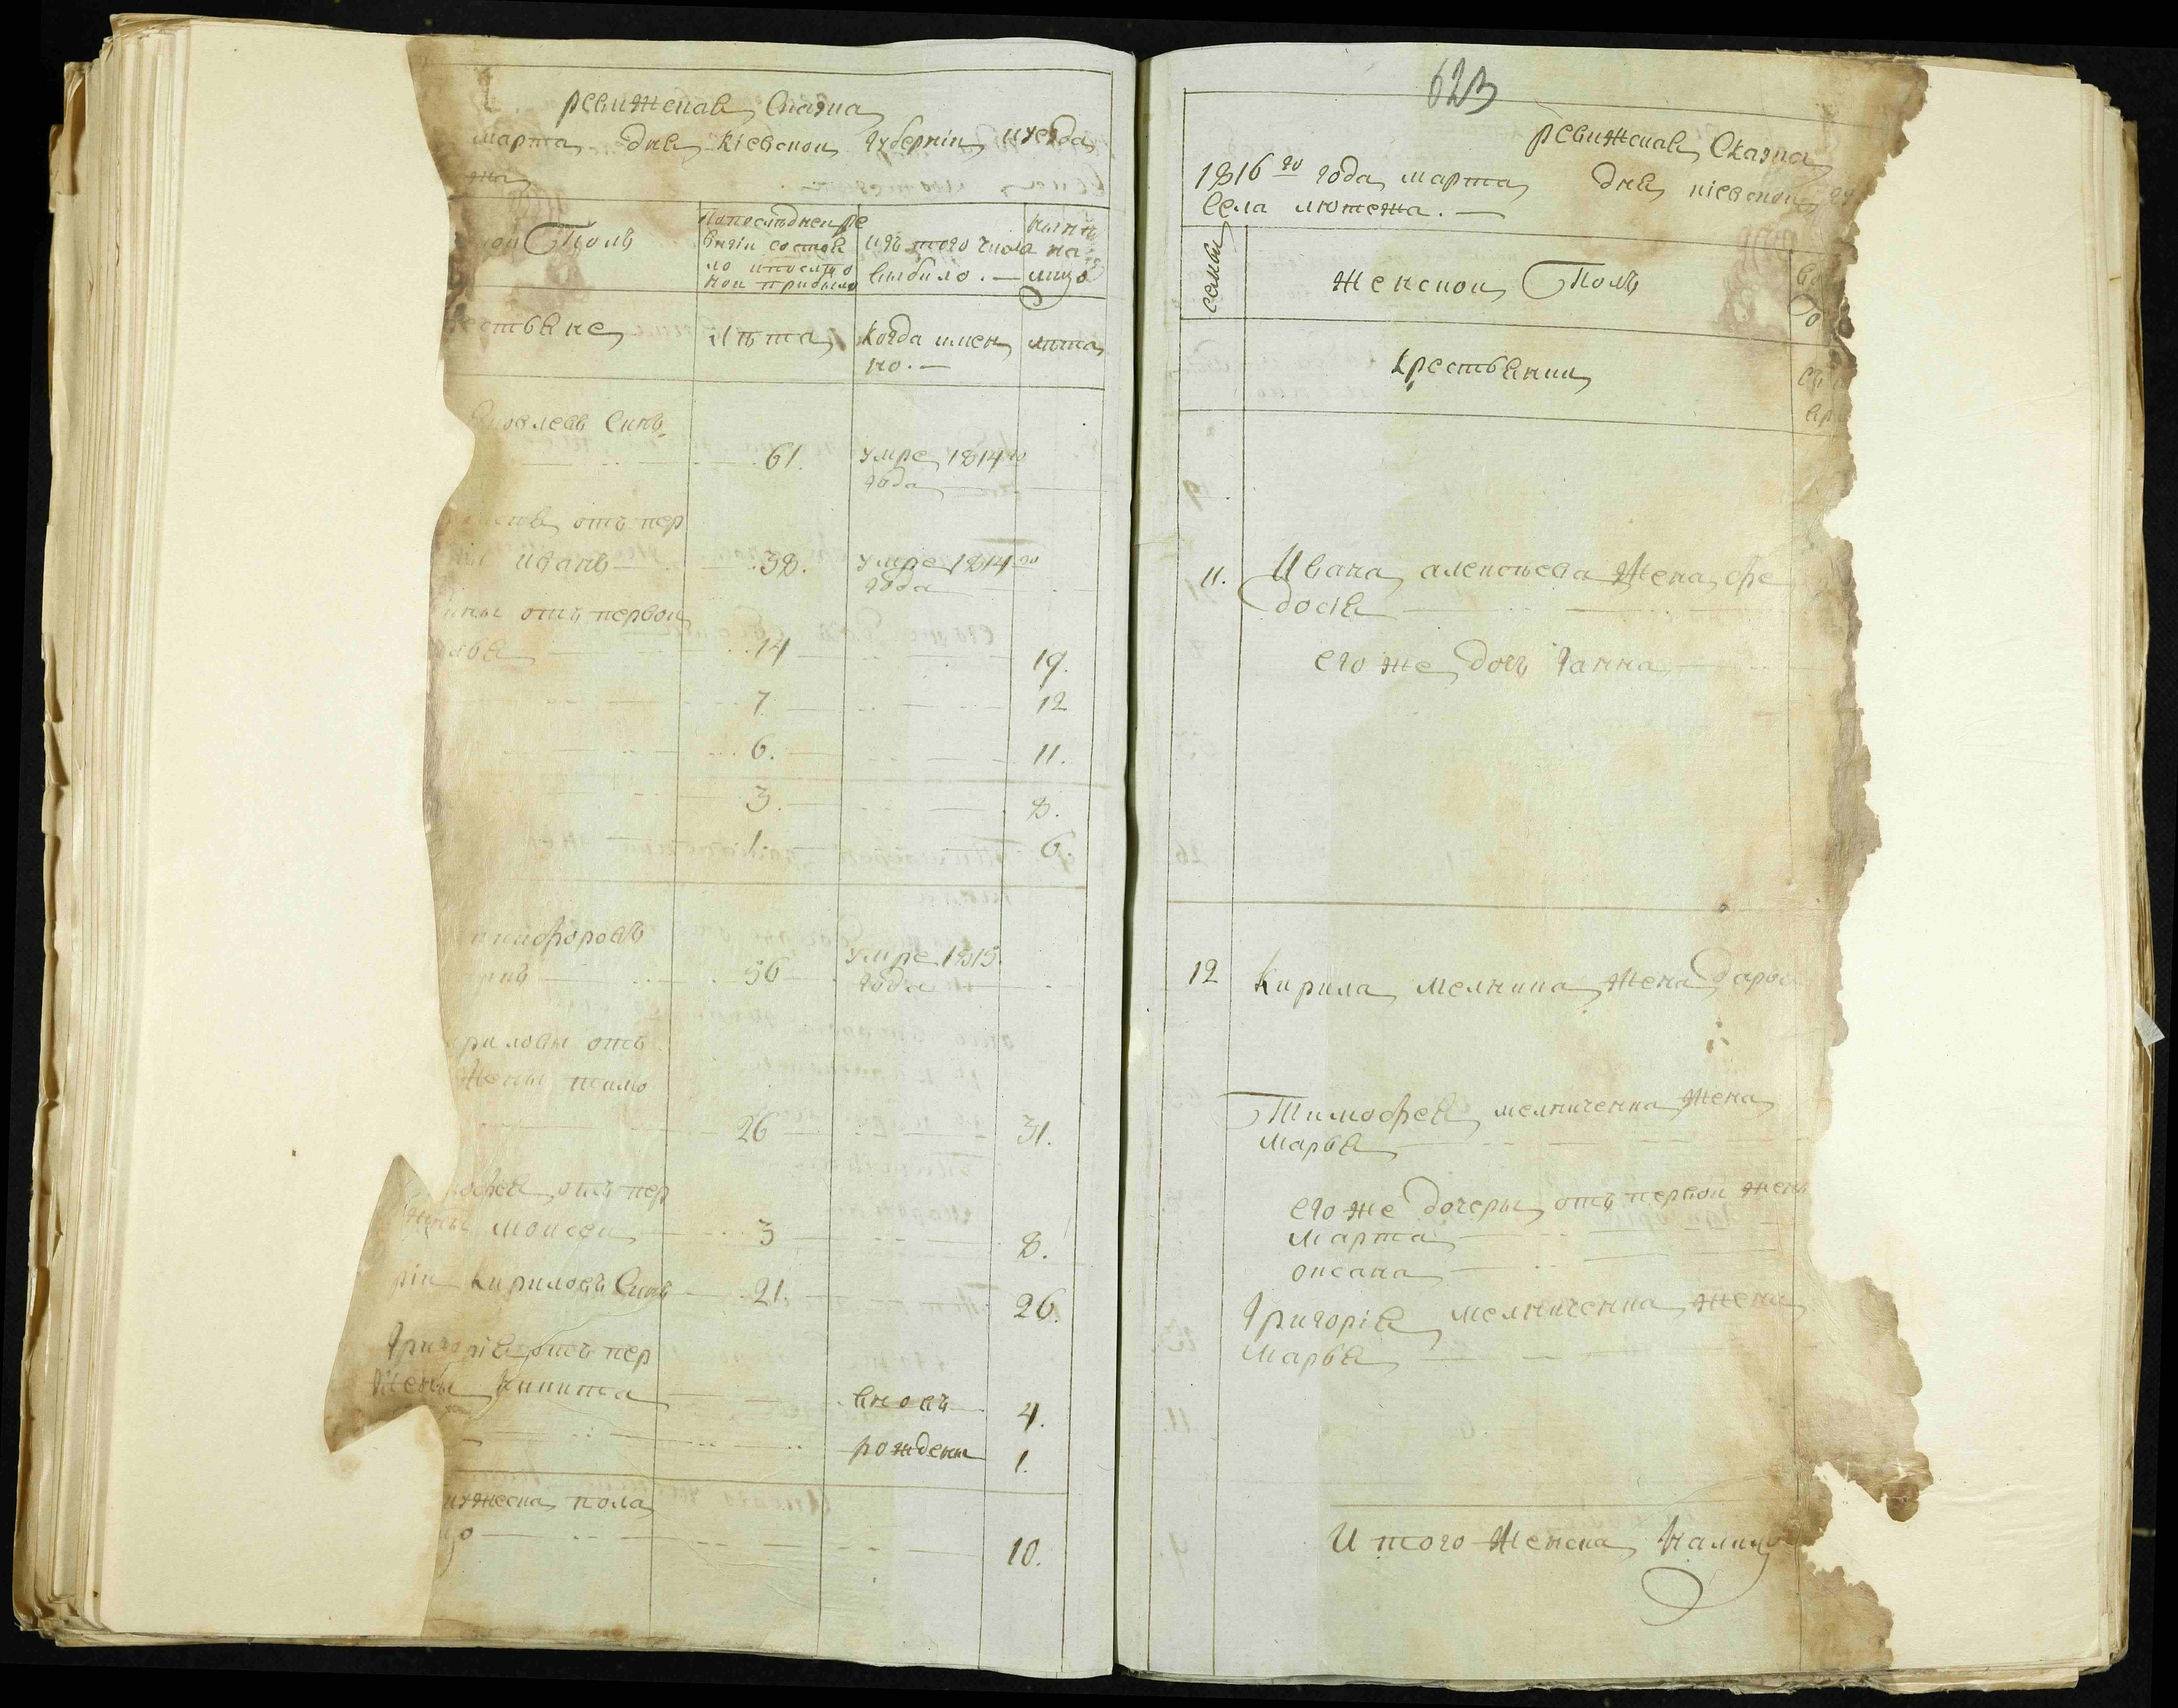 Ревижская Сказка
марта дня Кіевской Губерніи, и уезда
жа
кой Полъ
Попоследней ре
визіи состоя
ло и после то
кои прибыло
изъ того числа
выбило. —
ныне
на
лицо
естьяне
лѣта
когда имен
но. —
лѣта
Яковлевъ Синъ
61.
умре 1814го
года
отъ пер
Иванъ
38.
умре 1814го
года
ины отъ первои
14
19.
7.
12
6.
11.
3.
8.
1.
6.
никифоровъ
56
умре 1815.
года
ириловы отъ
жены тимо
26
31.
офея отъ пер
жены Моисеи
3
8.
рій Кириловъ Синъ
21.
26.
Григорія отъ пер
жены Никита
вновъ
4.
рождены
1.
мужеска пола
цо
10.
623
Ревижская Сказка
1816го года марта дня кіевской гу
села лютежа. —
семьи
Женской Полъ
Крестьянки
11.
Ивана алексѣева Жена фе
досія
его же дочь Ганна
12
Кирила мелника Жена Дарья
Тимофея мелниченка Жена
Марья
его же дочеры отъ первой жены
Марта
оксана
Григорія мелниченка жена
Марья
И того Женска Налицо